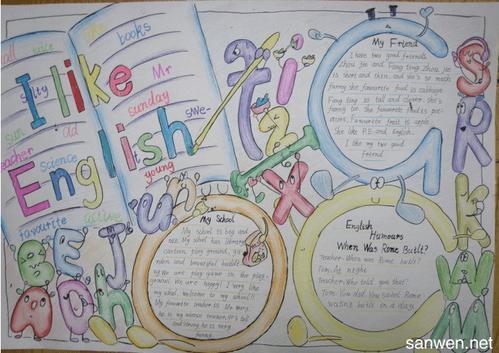 all nice like books
I like
salty Mr
sunday
sun old swe-
teacher English
science young
favourite active
My Friend
I have two good friends
Zhou Jie and Fang Fang Zhou Jie
is short and thin. and she's so much
funny she favourite food is cabbage.
Fang Fang is tall and clever. she's
funny too. She favourite
Favourite fruit is apple.
She like P.E and English.
I like my two good
friend.
My School
My school is big and
nice My school has library,
canteen, play ground, garden
and beautiful
We are play game in the play
ground. We are happy! I very like
my school welcome to my school!!
My favourite teacher is Mr Wang.
he is my Chinese teacher. He's tall
and strong he is very
funny.
English
Humours
When Was Rome Built?
Teacher: When was Rome built?
Tom: At night.
Teacher: Who told you that?
Tom: You did. You said Rome
wasn't built in a day.
B E F J U n
A O h
A i S
2 R
I X G L
W
M
sanwen.net